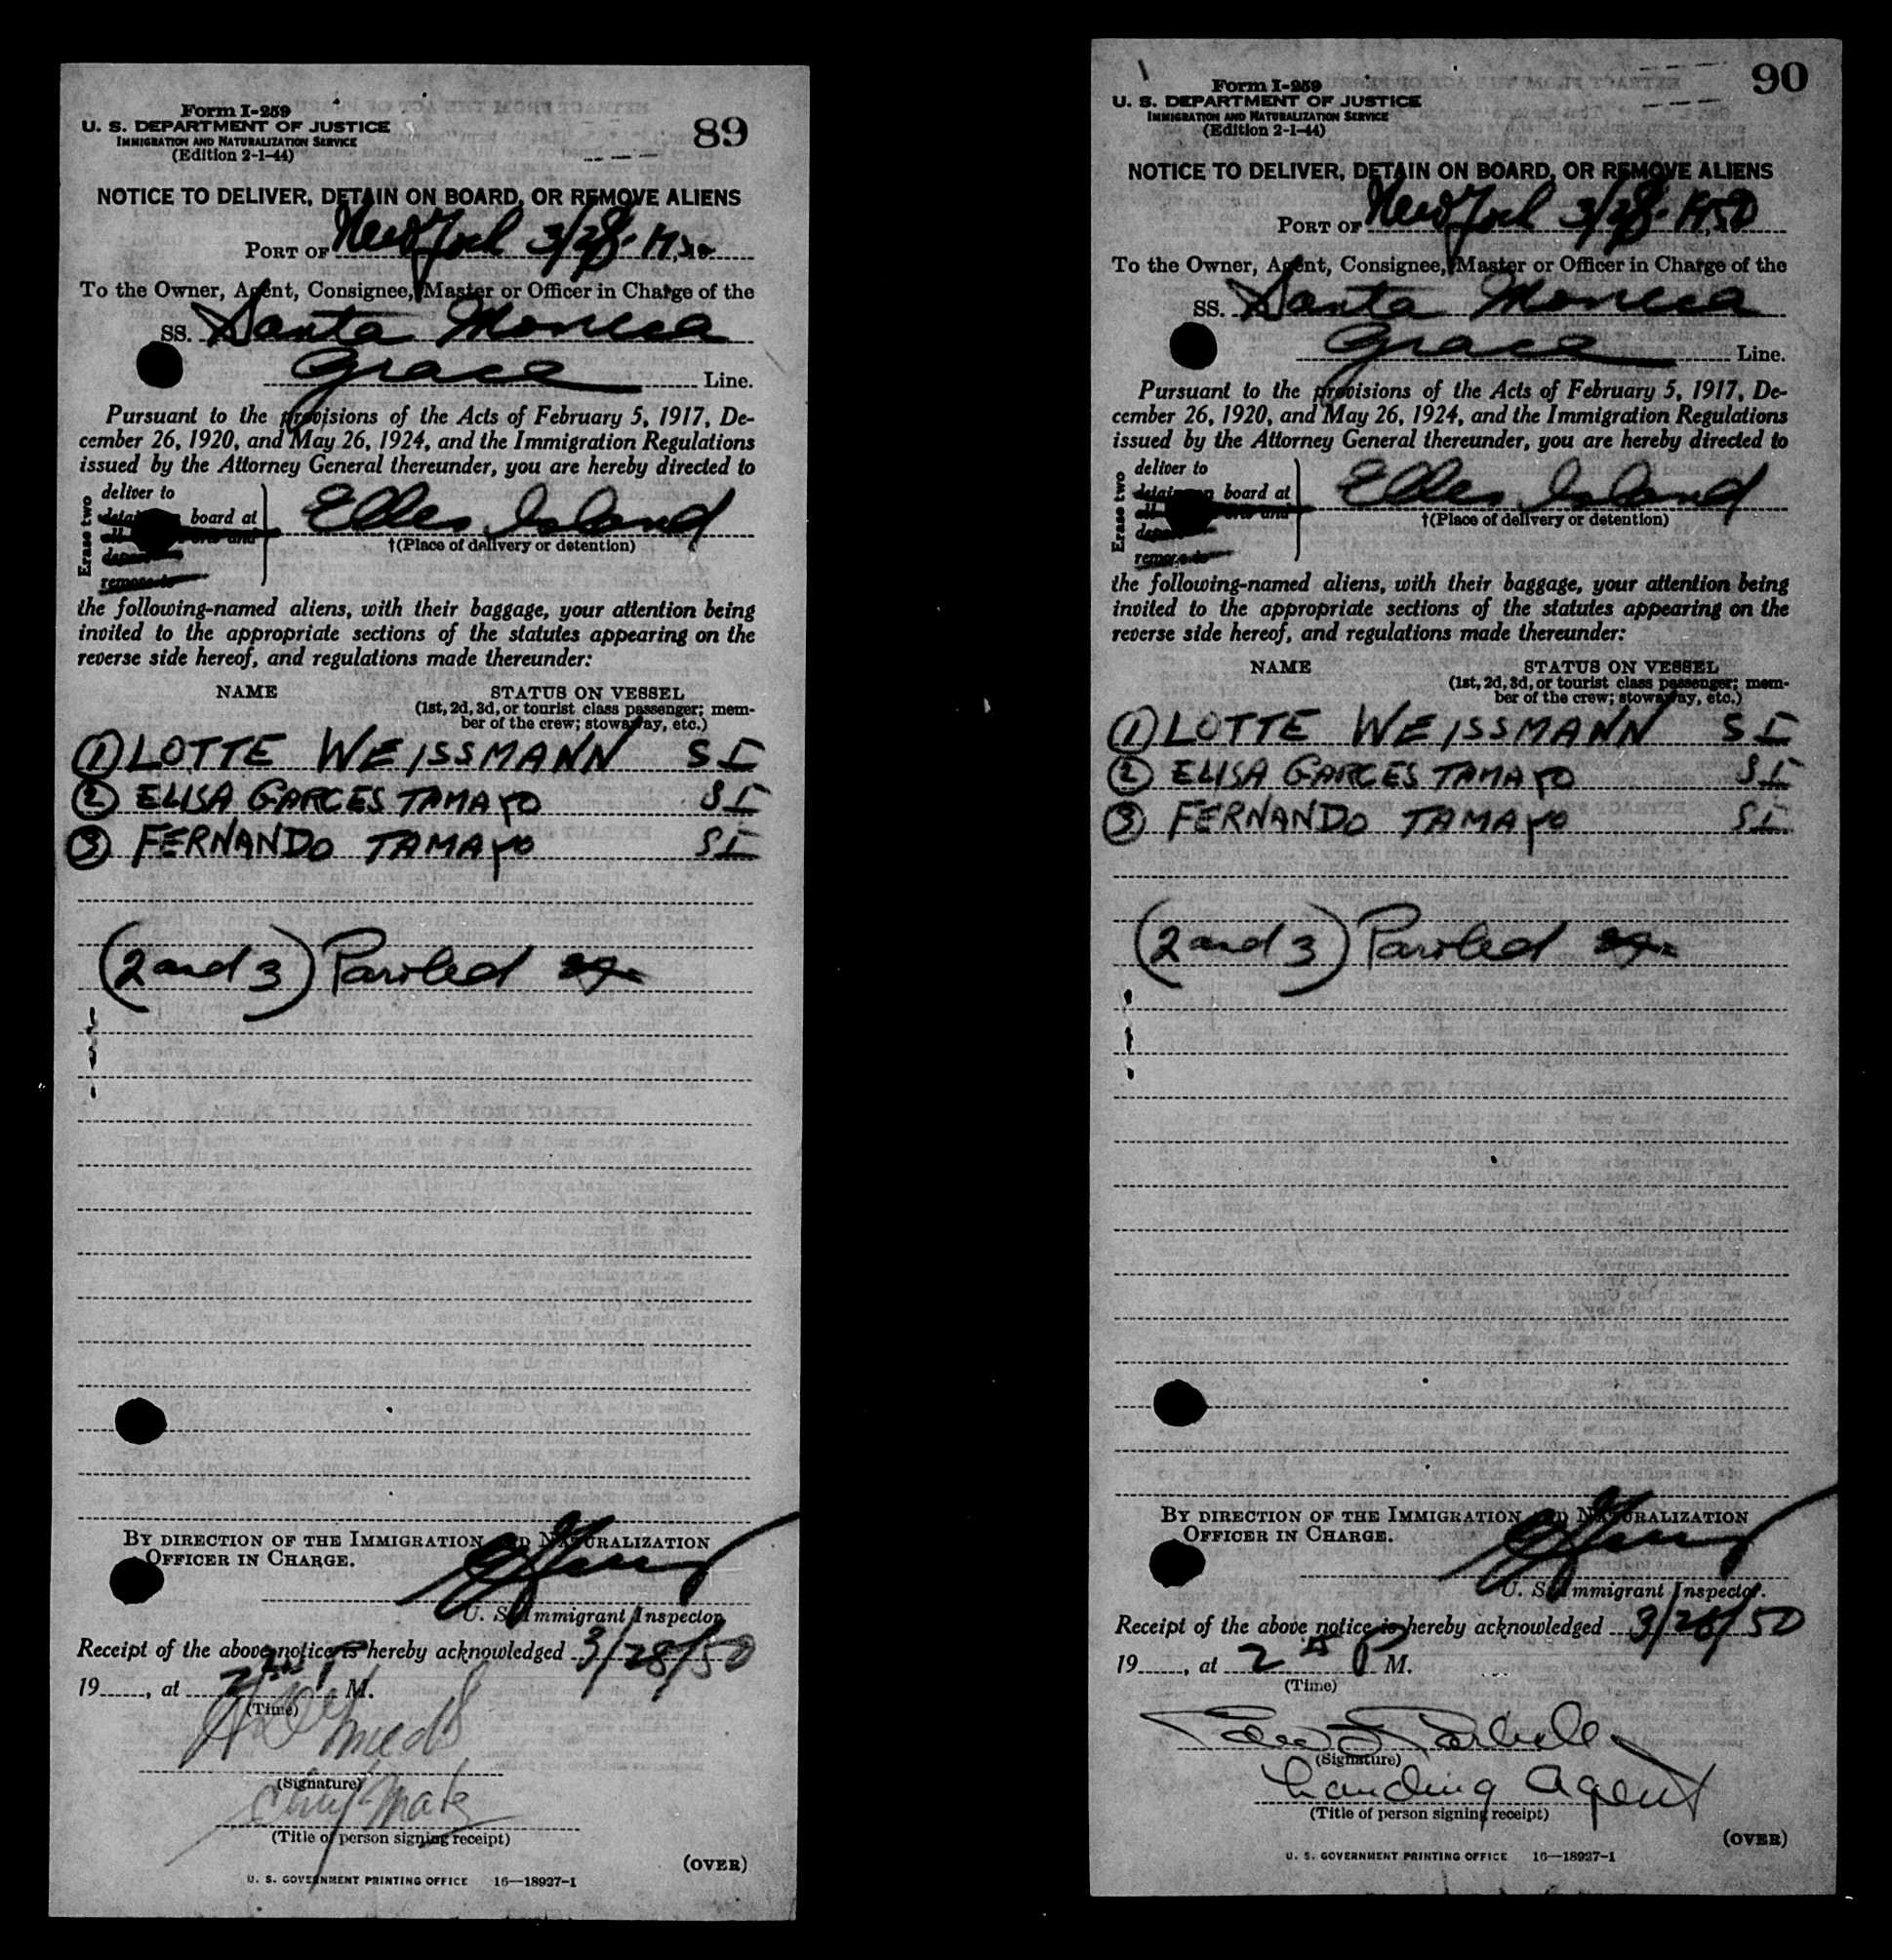 Form I-259
U. S. DEPARTMENT OF JUSTICE
IMMIGRATION AND NATURALIZATION SERVICE
(Edition 2-1-44)
89
NOTICE TO DELIVER, DETAIN ON BOARD, OR REMOVE ALIENS
PORT OF New York 3/28. 1950
To the Owner, Agent, Consignee, Master or Officer in Charge of the
SS. Santa Monica
Grace Line.
Pursuant to the provisions of the Acts of February 5, 1917, De-
cember 26, 1920, and May 26, 1924, and the Immigration Regulations
issued by the Attorney General thereunder, you are hereby directed to
Erase two
deliver to
board at
remove to
Elles Island
†(Place of delivery or detention)
the following-named aliens, with their baggage, your attention being
invited to the appropriate sections of the statutes appearing on the
reverse side hereof, and regulations made thereunder:
NAME STATUS ON VESSEL
(1st, 2d, 3d, or tourist class passenger; mem-
ber of the crew; stowaway, etc.)
(1) LOTTE WEISSMANN S I
(2) ELISA GARCES TAMAYO S I
(3) FERNANDO TAMAYO S I
(2 and 3) Paroled
BY DIRECTION OF THE IMMIGRATION AND NATURALIZATION
OFFICER IN CHARGE.
U. S. Immigrant Inspector.
Receipt of the above notice is hereby acknowledged 3/28/50
19....., at P M.
(Time)
(Signature)
Chief Mate
(Title of person signing receipt)
(OVER)
U. S. GOVERNMENT PRINTING OFFICE 16—18927-1
Form I-259
U. S. DEPARTMENT OF JUSTICE
IMMIGRATION AND NATURALIZATION SERVICE
(Edition 2-1-44)
90
NOTICE TO DELIVER, DETAIN ON BOARD, OR REMOVE ALIENS
PORT OF New York 3/28. 1950
To the Owner, Agent, Consignee, Master or Officer in Charge of the
SS. Santa Monica
Grace Line.
Pursuant to the provisions of the Acts of February 5, 1917, De-
cember 26, 1920, and May 26, 1924, and the Immigration Regulations
issued by the Attorney General thereunder, you are hereby directed to
Erase two
deliver to
board at
remove to
Elles Island
†(Place of delivery or detention)
the following-named aliens, with their baggage, your attention being
invited to the appropriate sections of the statutes appearing on the
reverse side hereof, and regulations made thereunder:
NAME STATUS ON VESSEL
(1st, 2d, 3d, or tourist class passenger; mem-
ber of the crew; stowaway, etc.)
(1) LOTTE WEISSMANN S I
(2) ELISA GARCES TAMAYO S I
(3) FERNANDO TAMAYO S I
(2 and 3) Paroled
BY DIRECTION OF THE IMMIGRATION AND NATURALIZATION
OFFICER IN CHARGE.
U. S. Immigrant Inspector.
Receipt of the above notice is hereby acknowledged 3/28/50
19....., at 2 P M.
(Time)
(Signature)
Landing Agent
(Title of person signing receipt)
(OVER)
U. S. GOVERNMENT PRINTING OFFICE 16—18927-1